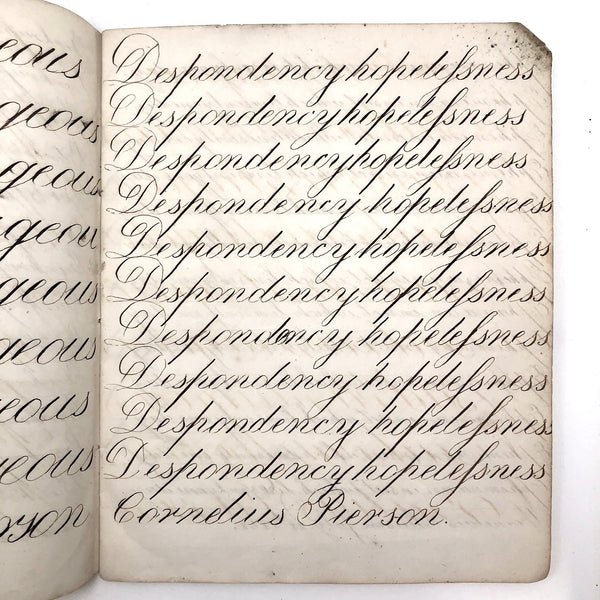 eous
geous
geous
geous
geous
geous
eous
eous
rson
Despondency hopelessness
Despondency hopelessness
Despondency hopelessness
Despondency hopelessness
Despondency hopelessness
Despondency hopelessness
Despondency hopelessness
Despondency hopelessness
Despondency hopelessness
Despondency hopelessness
Cornelius Pierson.